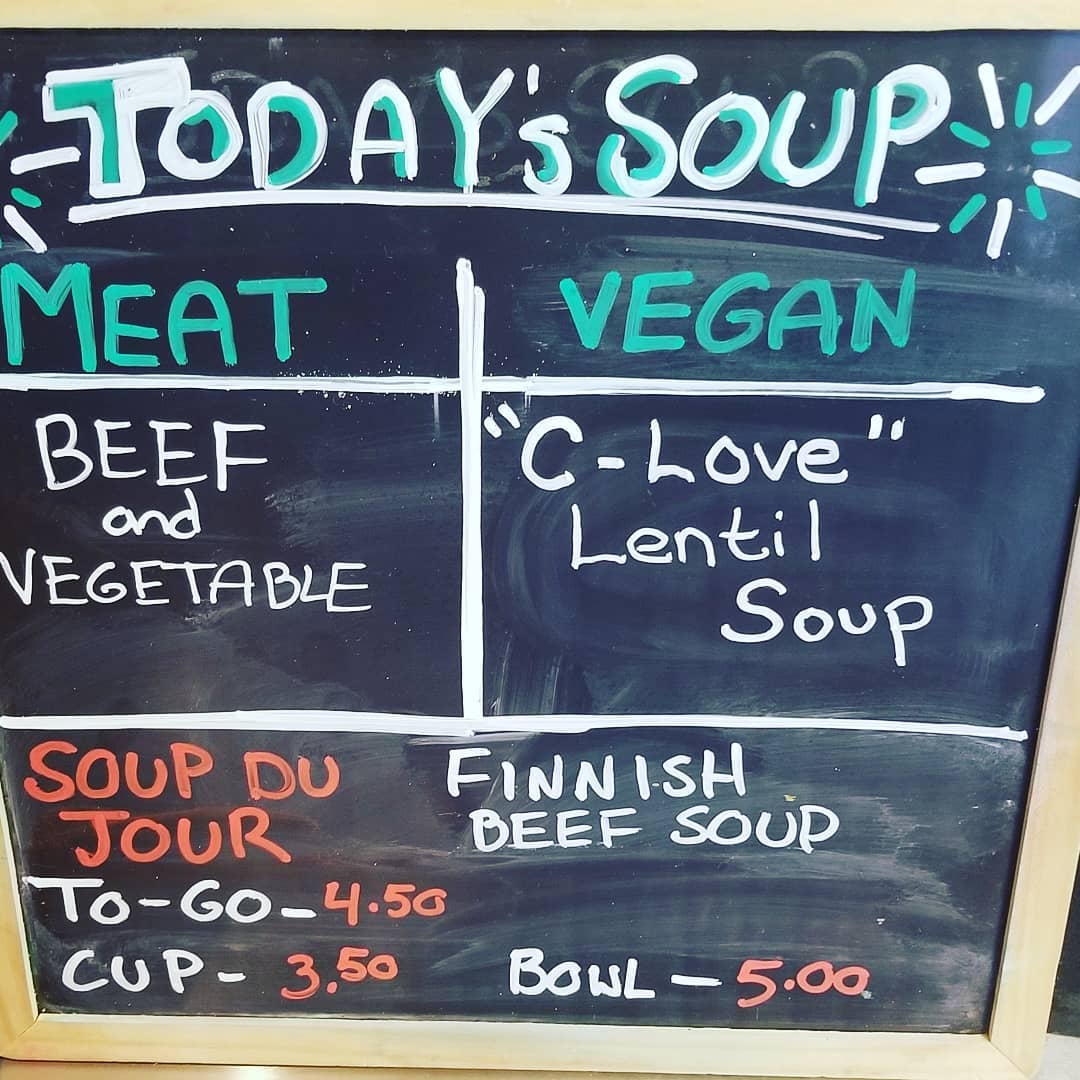 TODAY's SOUP
MEAT
VEGAN
BEEF
and
VEGETABLE
"C-Love"
Lentil
Soup
SOUP DU
JOUR
FINNISH
BEEF SOUP
TO-GO-4.50
CUP- 3.50
BOWL - 5.00